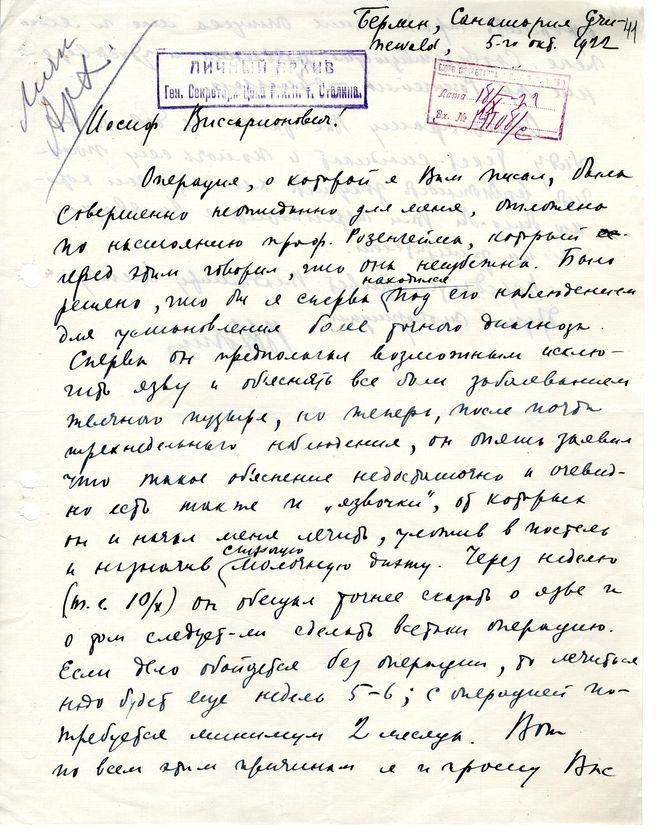 Берлин, Санатория Gru-
newald, 5-го окт. 1922
41
Личн
арх
ЛИЧНЫЙ АРХИВ
Ген. Секретаря Цека Р.К.П. т. Сталина.
Дата 18/X-22
Вх. №
Иосиф Виссарионович!
Операция, о которой я Вам писал, была
совершенно неожиданно для меня, отложена
по настоянию проф. Розенгейма, который
перед этим говорил, что она неизбежна. Было
решено, что бы я сперва находился под его наблюдением
для установления более точного диагноза.
Сперва он предполагал возможным исклю-
чить язву и объяснять все боли заболеванием
желчного пузыря, но теперь, после почти
трехнедельного наблюдения, он опять заявил
что такое объяснение недостаточно и очевид-
но есть также и „язвочки", от которых
он и начал меня лечить, уложив в постель
и назначив строгую молочную диэту. Через неделю
(т.е. 10/X) он обещал точнее сказать о язве и
о том следует-ли сделать всетаки операцию.
Если дело обойдется без операции, то лечиться
надо будет еще недель 5-6; с операцией по-
требуется минимум 2 месяца. Вот
по всем этим причинам я и прошу Вас